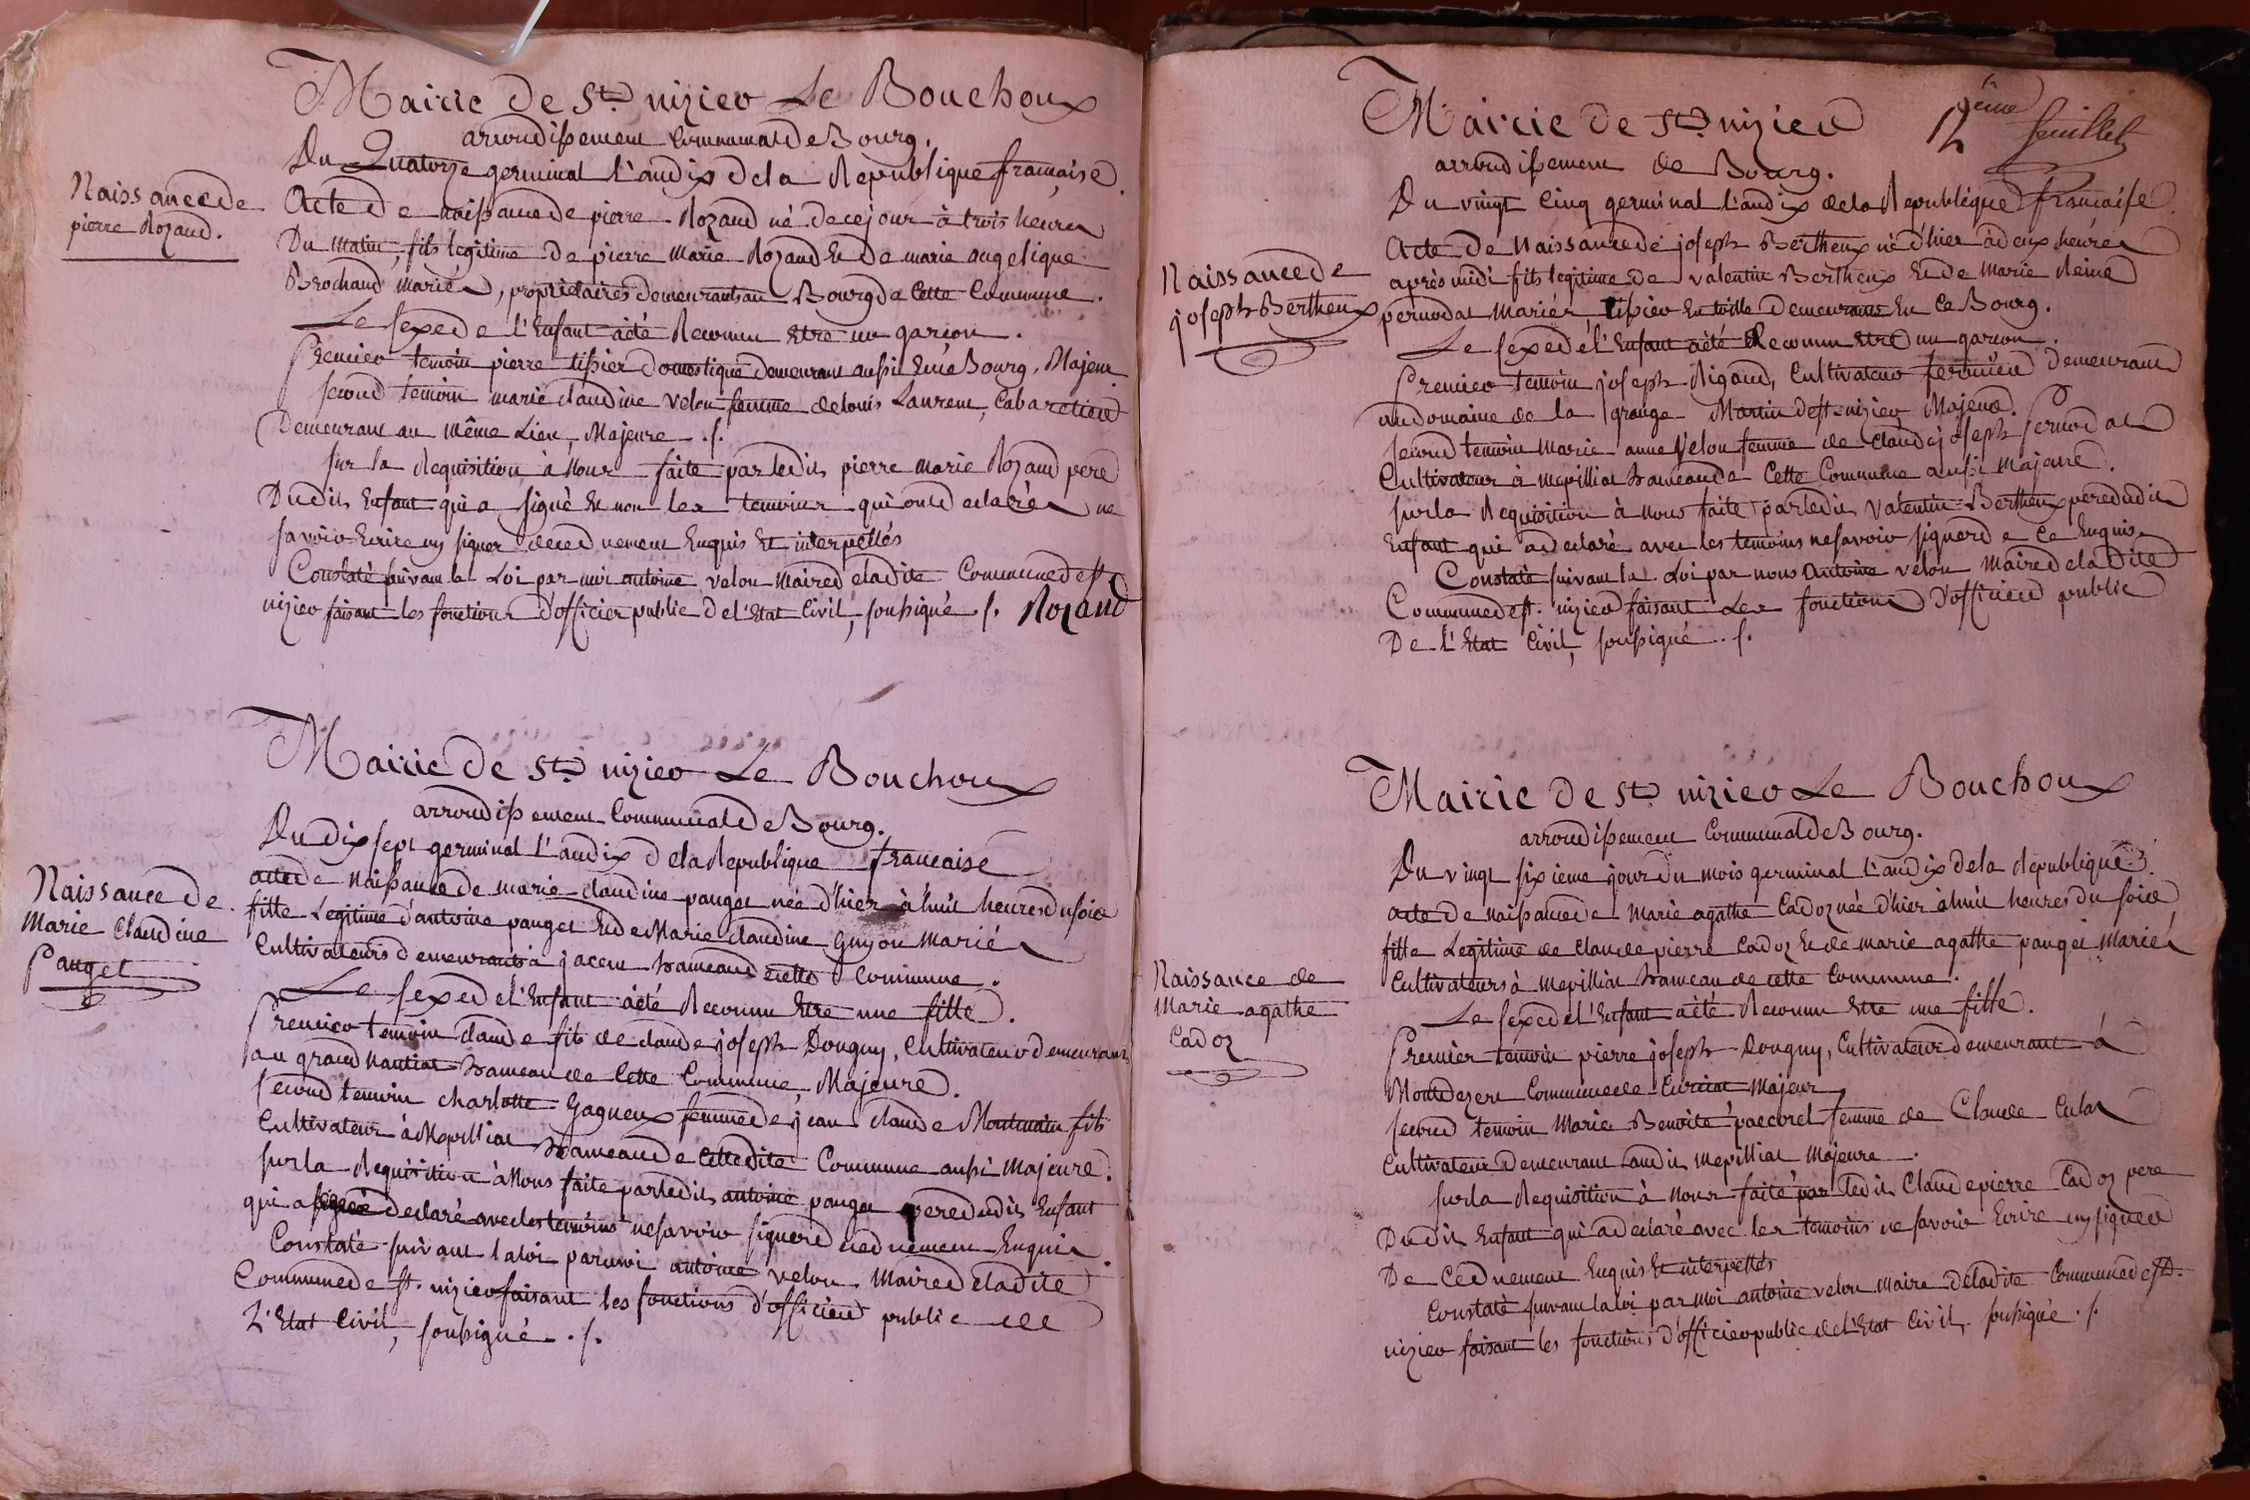 Mairie de St. nizier Le Bouchoux
arrondissement Communal de Bourg.
Du Quatorze germinal l'an dix de la Republique française.
Naissance de
pierre Rozand.
Acte de naissance de pierre Rozand né de ce jour à trois heures
Du matin, fils legitime de pierre Marie Rozand Et de marie angelique
Brochand mariés, propriétaires demeurants au Bourg de Cette Commune.
Le sexe de l'Enfant à été Reconnu Etre un garçon.
Premier temoin pierre tissier domestique demeurant aussi En ce Bourg, Majeur
second temoin marie claudine velon femme de louis Laurent, Cabaretier
Demeurant au même Lieu, Majeure ./.
sur la Requisition à Nous faite par ledit pierre marie Rozand pere
Dudit Enfant qui a signé Et non les temoins qui ont declarés ne
savoir Ecrire ny signer de ce dument Enquis Et interpellés
Constaté suivant la Loi par moi antoine velon Maire de ladite Commune de st.
nizier faisant les fonctions d'officier public de l'Etat Civil, soussigné ./. Rozand
Mairie de St. nizier Le Bouchoux
arrondissement Communal de Bourg.
Du dix sept germinal l'an dix de la Republique francaise
Naissance de
Marie Claudine
Panget
acte de Naissance de marie claudine panget née d'hier à huit heures du soir
fille Legitime d'antoine panget Et de Marie claudine Guyon Mariés
Cultivateurs demeurants à jacem hameau de cette Commune.
Le sexe de l'Enfant à été Reconnu Etre une fille.
Premier temoin claude fils de claude joseph Donguy, Cultivateur demeurant
au grand nantiat hameau de Cette Commune, Majeure.
second temoin charlotte Gagneux femme de jean claude Montmain fils
Cultivateur à Mepilliat hameau de Cette dite Commune aussi majeure.
sur la Requisition à Nous faite par ledit antoine panget pere dudit Enfant
qui a declaré avec les temoins ne savoir signer de ce dument Enquis.
Constaté suivant la loi par moi antoine velon Maire de ladite
Commune de st. nizier faisant les fonctions d'officier public de
L'Etat Civil, soussigné ./.
Mairie de St. nizier
12ème feuillet
arrondissement de Bourg.
Du vingt Cinq germinal l'an dix de la Republique française.
Naissance de
joseph Bertheux
Acte de Naissance de joseph Bertheux né d'hier à deux heures
après midi fils legitime de valentin Bertheux Et de Marie Reine
pernodat Mariés, tissier En toille demeurans En Ce Bourg.
Le sexe de l'Enfant à été Reconnu Etre un garçon.
Premier temoin joseph Rigaud, Cultivateur fermier demeurant
au domaine de la grange Martin de st. nizier Majeur.
second temoin Marie anne Velon femme de claude joseph Pernodat
Cultivateur à Mepilliat hameau de Cette Commune aussi Majeure.
sur la Requisition à Nous faite par ledit Valentin Bertheux pere dudit
Enfant qui a declaré avec les temoins ne savoir signer de Ce Enquis.
Constaté suivant la Loi par nous Antoine velon Maire de ladite
Commune de st. nizier faisant Les fonctions D'officier public
De L'Etat Civil, soussigné ./.
Mairie de St. nizier Le Bouchoux
arrondissement Communal de Bourg.
Du vingt sixieme jour du mois germinal l'an dix de la République.
Naissance de
Marie agathe
Cadoz
acte de naissance de Marie agathe Cadoz née d'hier à huit heures du soir
fille Legitime de claude pierre Cadoz Et de marie agathe panget Mariés
Cultivateurs à Mepilliat hameau de cette Commune.
Le sexe de l'Enfant à été Reconnu Etre une fille.
Premier temoin pierre joseph Donguy, Cultivateur demeurant à
Montdezert Commune de Curciat Majeur
second temoin Marie Benoite femme de Claude
Cultivateur Demeurant audit Mepilliat Majeure.
sur la Requisition à Nous faite par ledit Claude pierre Cadoz pere
Dudit Enfant qui a declaré avec les temoins ne savoir Ecrire ny signer
De Ce dument Enquis Et interpellés
Constaté suivant la loi par moi antoine velon Maire de ladite Commune de st.
nizier faisant les fonctions d'officier public de l'Etat Civil, soussigné ./.